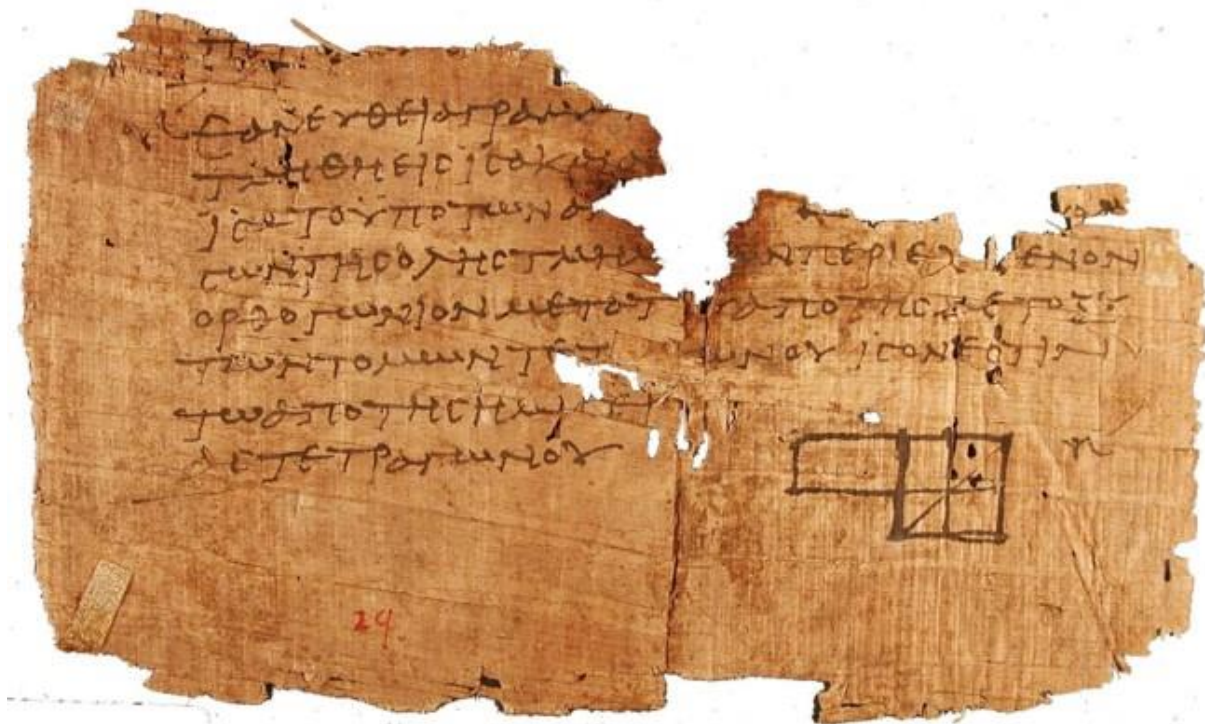 ΕΑΝ ΕΥΘΕΙΑ ΓΡΑΜΜ
ΤΜΗΘΗ ΕΙϹ ΙϹΑ ΚΑΙ
ΙϹΑ ΤΟ ΥΠΟ ΤΩΝ Α
ϹΩΝ ΤΗϹ ΟΛΗϹ ΤΜΗΜ Ν ΠΕΡΙΕΧ ΜΕΝΟΝ
ΟΡΘΟΓΩΝΙΟΝ ΜΕΤΑ Τ ΑΠΟ ΤΗϹ ΜΕΤΟΞΥ
ΤΩΝ ΤΟΜΩΝ ΤΕΤ ΩΝΟΥ ΙϹΟΝ ΕϹΤΙΝ
ΤΩ ΑΠΟ ΤΗϹ ΗΜΙϹΕΙ
ΑϹ ΤΕΤΡΑΓΩΝΟΥ
29